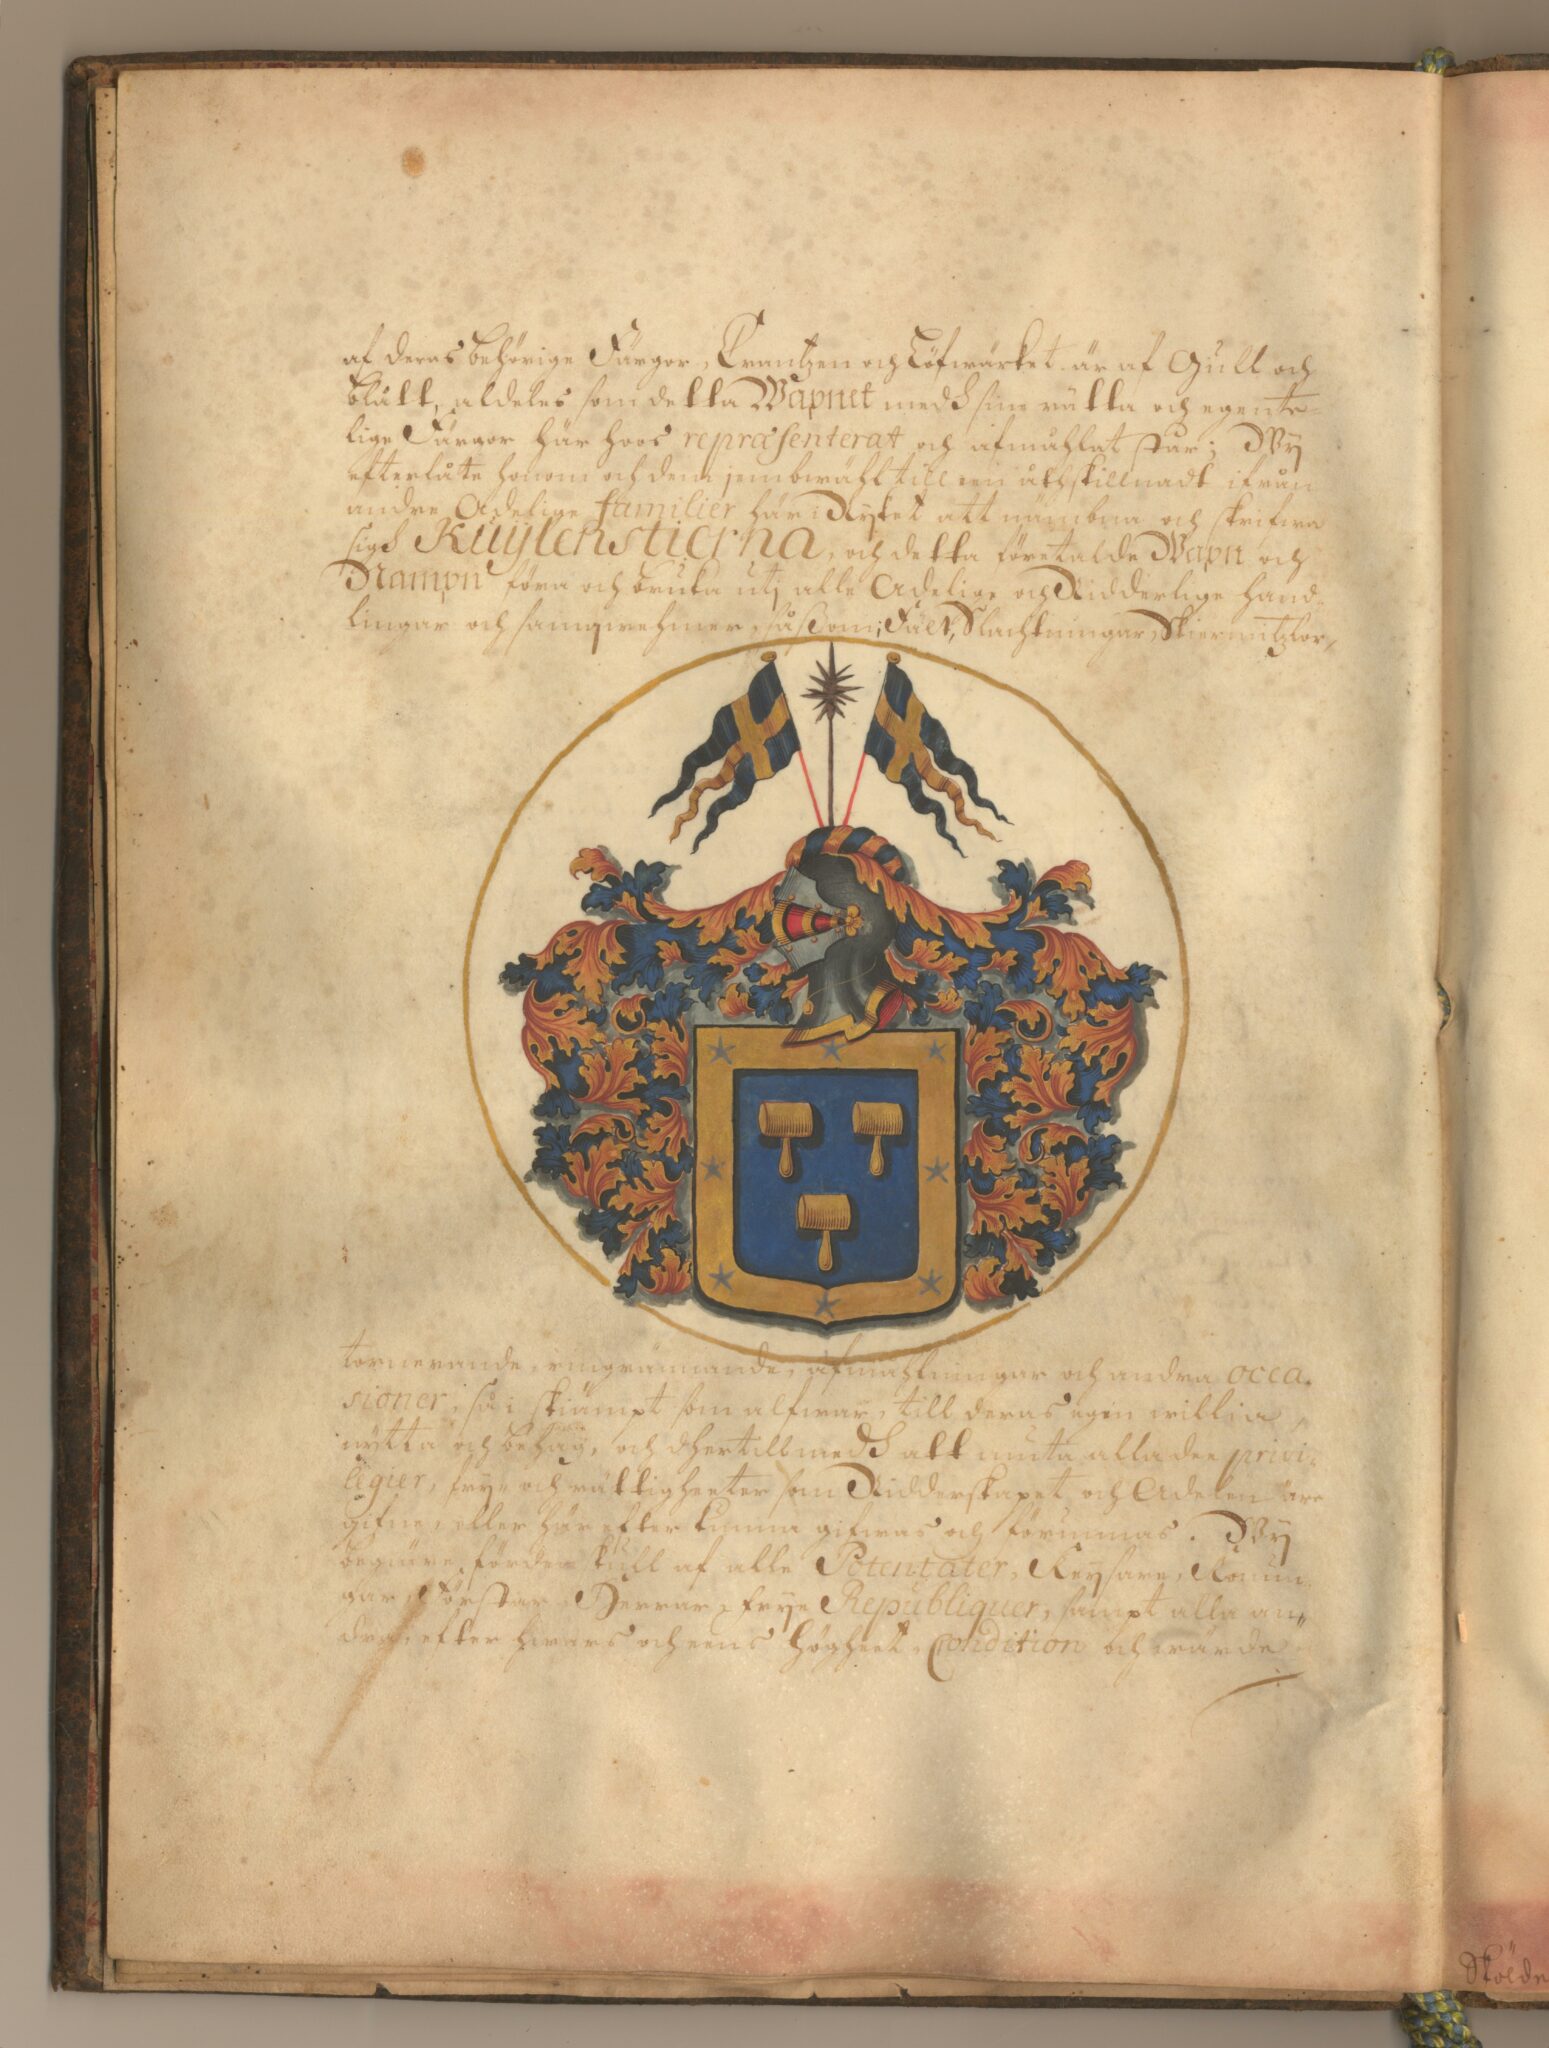 af deras behörige Färgor, Crantzen och Löfwärket är af Gull och
blått, aldeles som detta Wapnet medh sine rätta och egente-
lige Färgor här hoos repræsenterat och afmåhlat står; Wy
efterlåte honom och dem jembwähl till een åthskillnadt ifrån
andre Adelige familier här i Ryket att nämbna och skrifwa
sigh Kuÿlenstierna, och detta företalde Wapn och
Nampn föra och bruka utj alle Adelige och Ridderlige hand-
lingar och samqwehmer, såsom; Fält, Slachtningar, Skiermützlor,
tornerande, ringrännande, afmåhlningar och andra occa-
sioner, så i skiämpt som alfwar, till deras egen willia,
nÿtta och behag, och dhertill medh att niuta alla dee privi-
legier, frij- och rättigheeter som Ridderskapet och Adelen äre
gifne, eller här efter kunna gifwas och förunnas. Wy
begiäre fördenskull af alle Potentater, Keÿsare, Konun-
gar, Förstar, Herrar, frÿe Republiquer, sampt alla an-
dra, efter hwars och eens högheet, Condition och wärde
Skölde